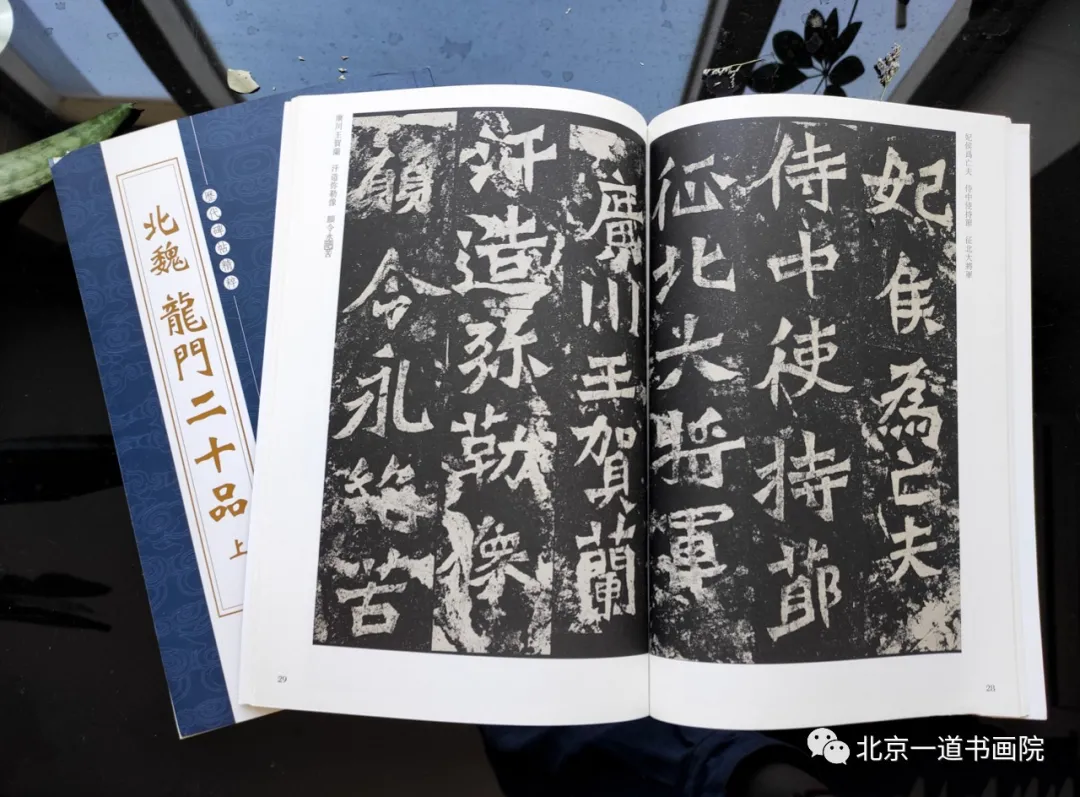 歷代碑帖精粹
北魏 龍門二十品 上
妃侯爲亡夫 侍中使持節 征北大將軍
妃侯為亡夫
侍中使持節
征北大將軍
28
廣川王賀蘭
汗造弥勒像
願令永絶苦
廣川王賀蘭 汗造弥勒像 願令永絶苦
29
北京一道书画院